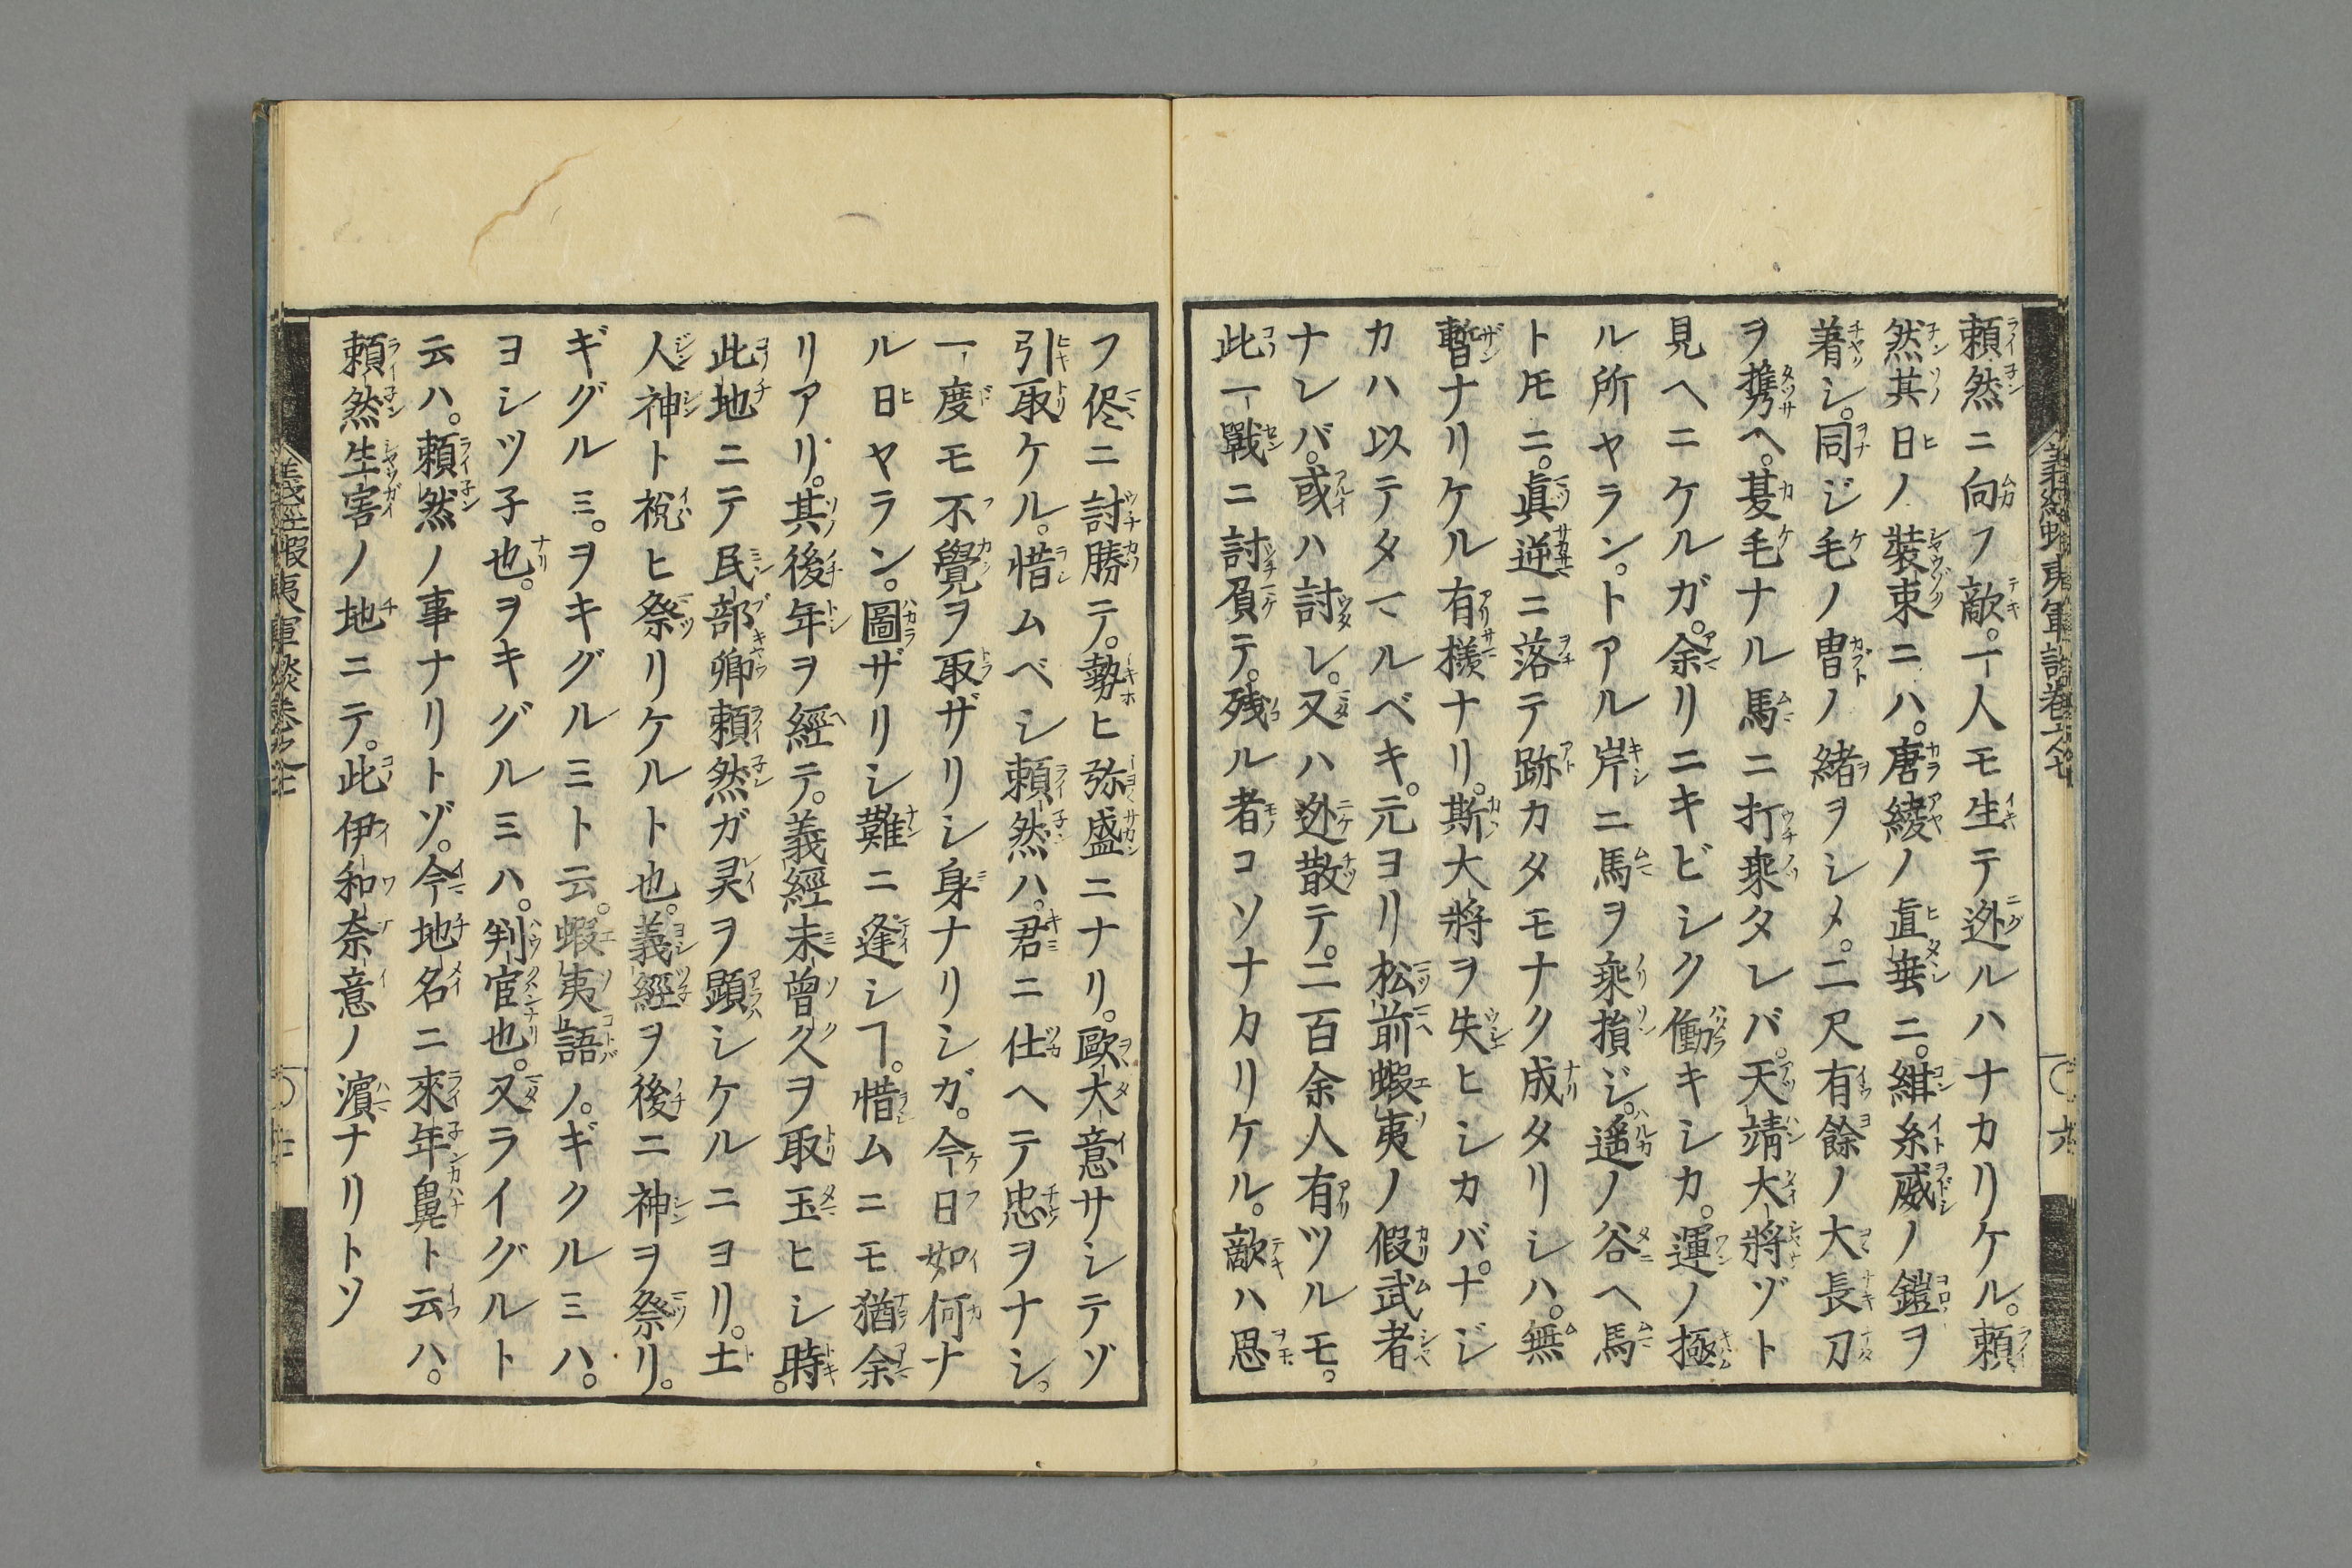 頼然ニ向フ敵。一人モ生テ迯ルハナカリケル。頼
然其日ノ裝束ニハ。唐綾ノ直垂ニ。紺糸威ノ鎧ヲ
着シ。同ジ毛ノ冑ノ緒ヲシメ。二尺有餘ノ大長刀
ヲ携ヘ。葦毛ナル馬ニ打乘タレバ。天靖大將ヅト
見ヘニケルガ。余リニキビシク働キシカ。運ノ極
ル所ヤラン。トアル岸ニ馬ヲ乘損ジ。遥ノ谷ヘ馬
トモニ。眞逆ニ落テ跡カタモナク成タリシハ。無
暫ナリケル有様ナリ。斯大將ヲ失ヒシカバ。ナジ
カハ以テタマルベキ。元ヨリ松前蝦夷ノ假武者
ナレバ。或ハ討レ。又ハ迯散テ。二百余人有ツルモ。
此一戰ニ討負テ。残ル者コソナカリケル。敵ハ思
フ侭ニ討勝テ。勢ヒ弥盛ニナリ。歐大意サシテゾ
引取ケル。惜ムベシ頼然ハ。君ニ仕ヘテ忠ヲナシ。
一度モ不覺ヲ取ザリシ身ナリシガ。今日如何ナ
ル日ヤラン。圖ザリシ難ニ逢シヿ。惜ムニモ猶余
リアリ。其後年ヲ經テ。義經未曾久ヲ取玉ヒシ時。
此地ニテ民部卿頼然ガ灵ヲ顕シケルニヨリ。土
人神ト祝ヒ祭リケルト也。義經ヲ後ニ神ヲ祭リ。
ギグルミ。ヲキグルミト云。蝦夷語ノ。ギクルミハ。
ヨシツ子也。ヲキグルミハ。判官也。又ライグルト
云ハ。頼然ノ事ナリトゾ。今地名ニ來年臯ト云ハ。
頼然生害ノ地ニテ。此伊和奈意ノ濵ナリトソ